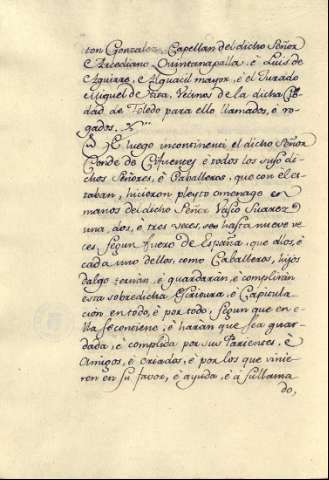 ton Gonzalez, Capellan del dicho Señor
è Arcediano, Quintanapalla, è Luis de
Aguirre, è Alguacil mayor, è el Jurado
Miguel de Vecinos de la dicha Ciu
dad de Toledo para ello llamados, è ro-
gados,
E luego incontinenti el dicho Señor
Conde de Cifuentes è todos los suso di-
chos Señores, è Caballeros, que con el es-
taban, hicieron pleyto omenage en
manos del dicho Señor Vasco Suarez
una, dos, è tres veces, è hasta nueve ve-
ces segun fuero de España, que ellos, è
cada uno dellos, como Caballeros, hijos
dalgo ternàn, è guardaràn, è compliràn
esta sobredicha Escritura, è Capitula-
cion en todo, è por todo, segun que en e-
lla se contiene, è haran que sea guar-
dada, è complida por sus Parientes, è
Amigos, è criados, è por los que vinie-
ren en su favor, è ayuda, è à su llama
do,